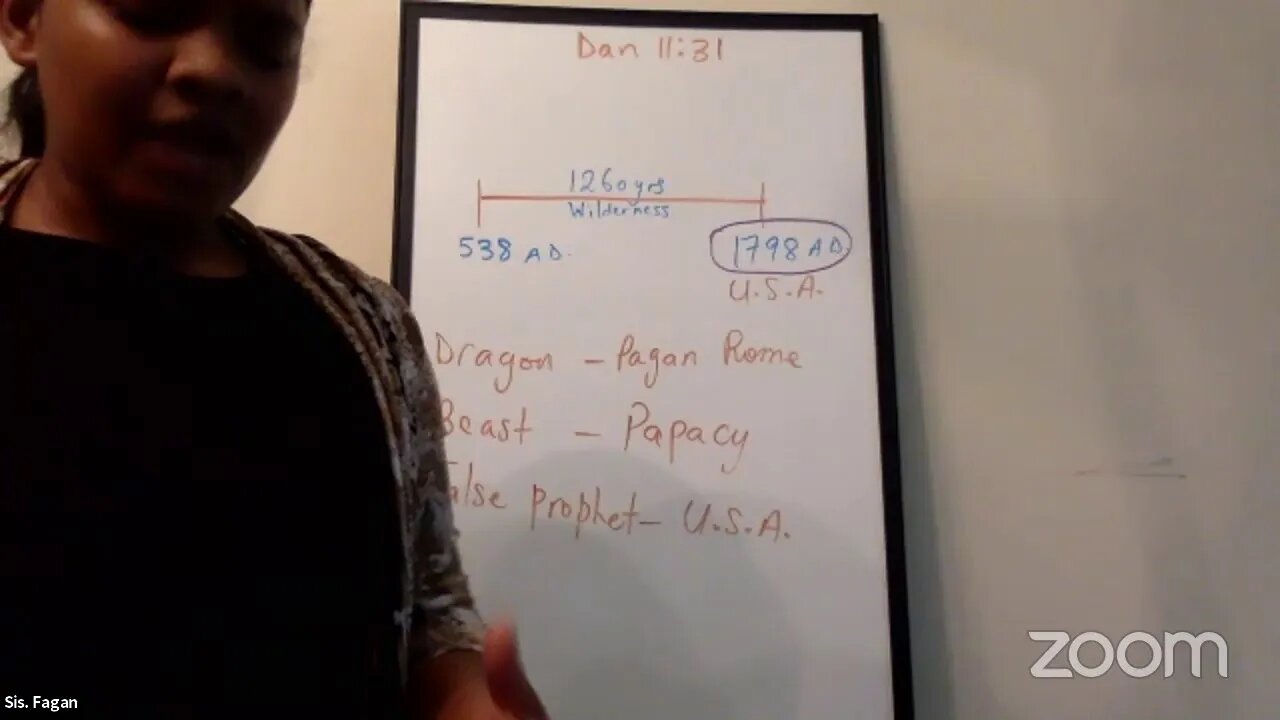 Dan 11:31
1260yrs
Wilderness
538 A D.
1798 A D.
U.S.A.
Dragon – Pagan Rome
Beast – Papacy
False prophet – U.S.A.
zoom
Sis. Fagan